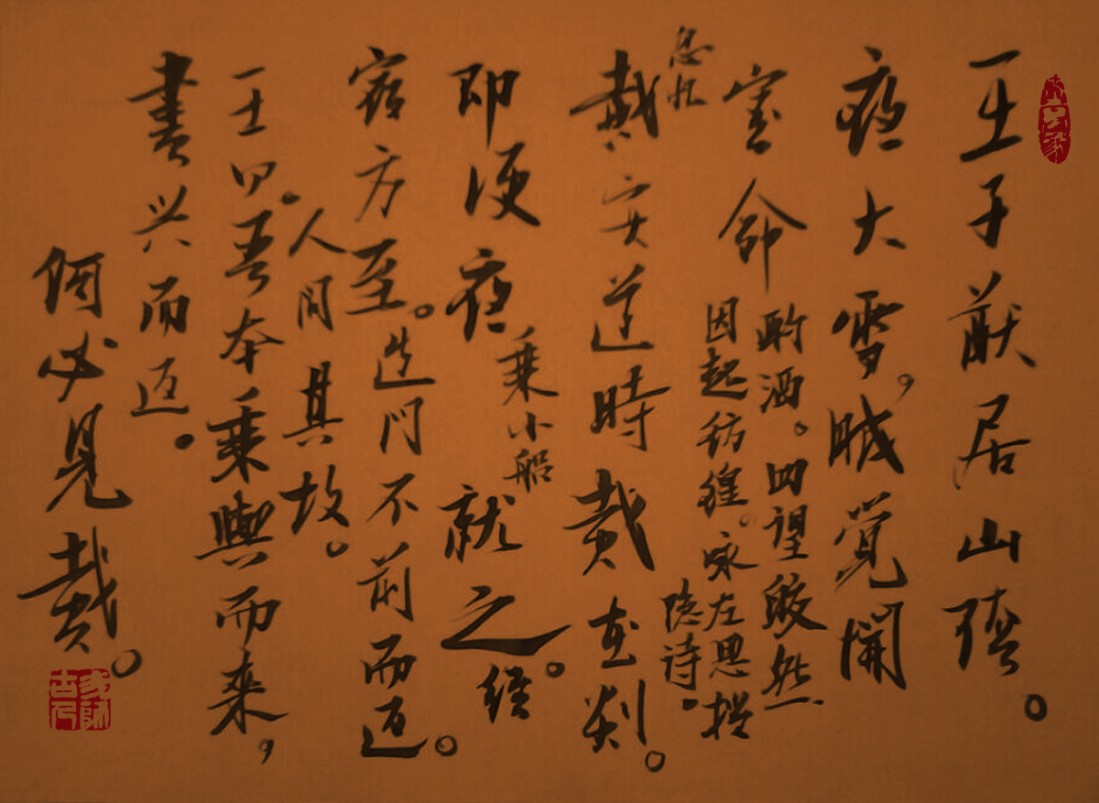 王子猷居山陰。
夜大雪，眠覺開
室命酌酒。四望皎然
因起彷徨。咏左思招
隐诗。
忽忆
戴安道時戴在剡。
即便夜乘小船就之。經
宿方至。造门不前而返。
人问其故。
王曰。吾本乘興而来，
兴而返。
何必見戴。